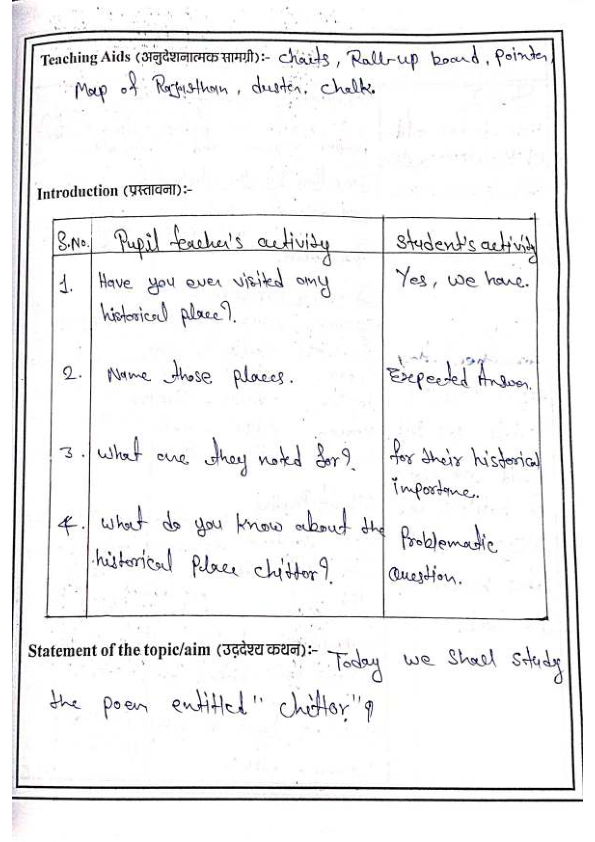 Teaching Aids (अनुदेशनात्मक सामग्री):- Charts, Roll-up board, Pointer,
Map of Rajasthan, duster. Chalk.
Introduction (प्रस्तावना):-
S.No. Pupil teacher's activity Student's activity
1. Have you ever visited any Yes, we have.
historical place?.
2. Name those places. Expected Answer.
3. What are they noted for? for their historical
importane.
4. What do you know about the Problematic
historical Place chittor? Question.
Statement of the topic/aim (उद्देश्य कथन):- Today we shall study
the poem entitled "chittor"?